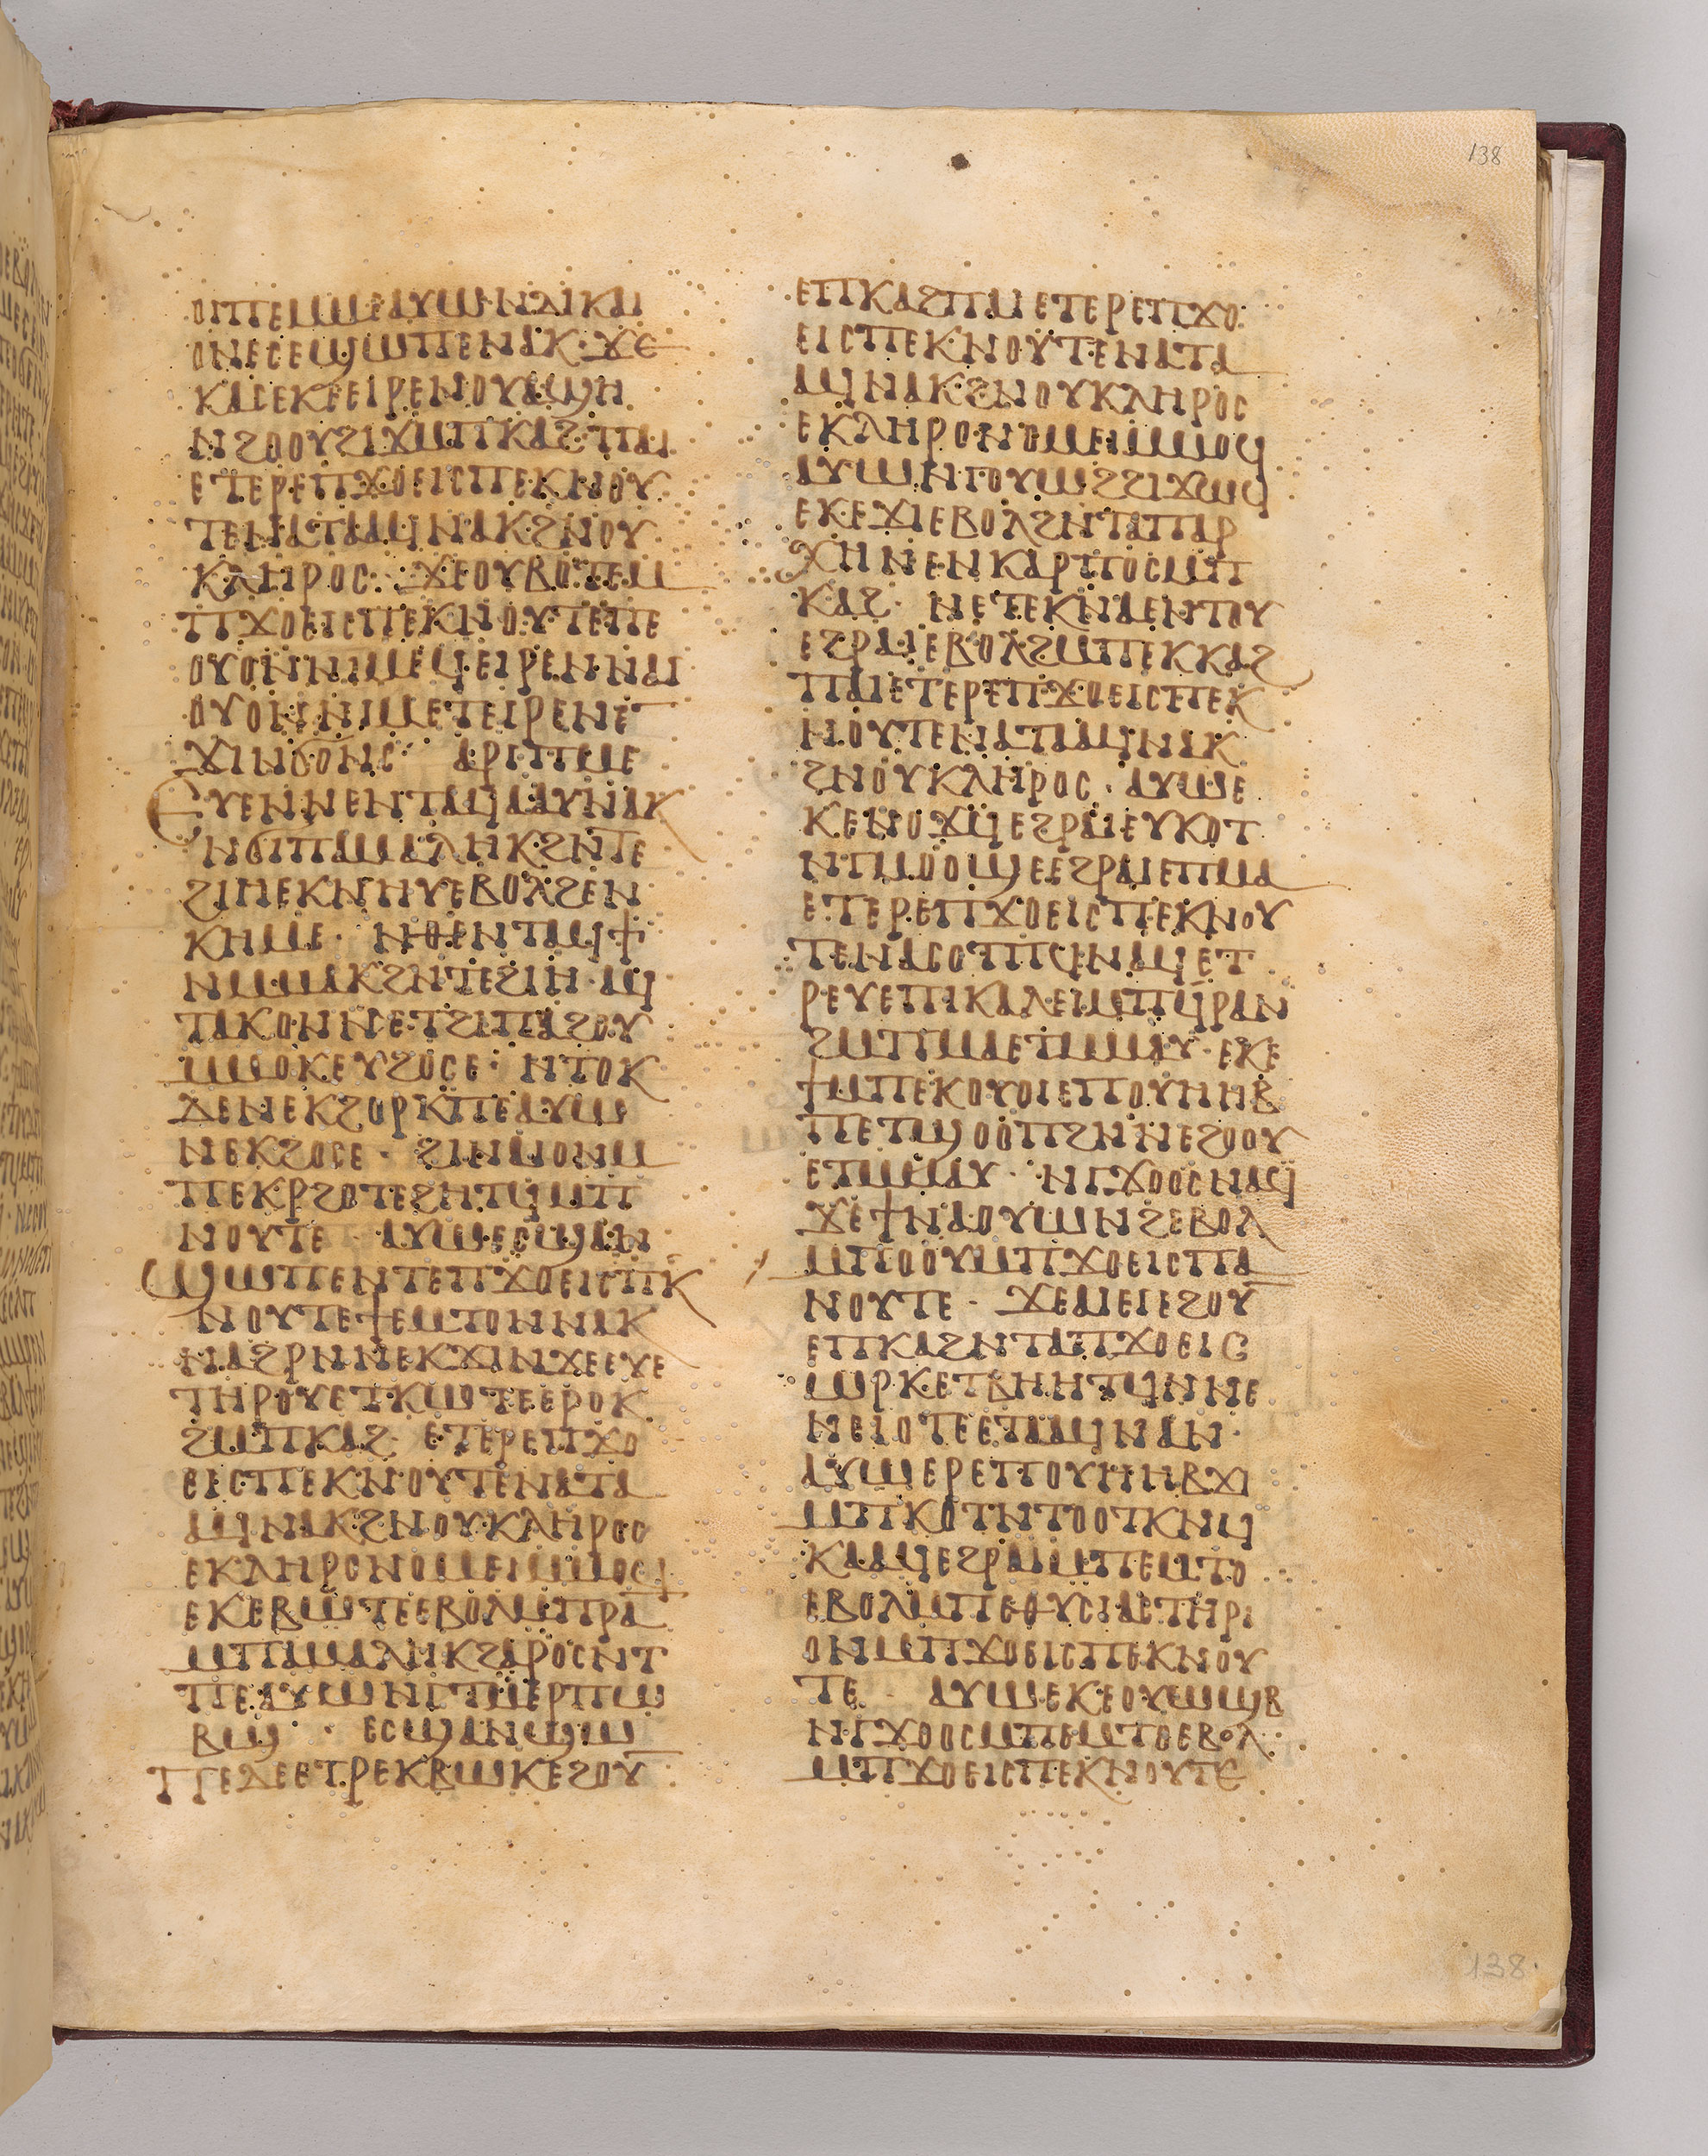 138
ⲟⲓⲡⲉⲙⲙⲉⲁⲩⲱⲛⲛⲇⲓⲕⲁⲓ
ⲟⲛⲉⲥⲉϣⲱⲡⲉⲛⲁⲕ· ϫⲉ
ⲕⲁⲥⲉⲕⲉⲉⲓⲣⲉⲛⲟⲩⲁϣⲏ
ⲛϩⲟⲟⲩϩⲓϫⲙⲡⲕⲁϩ· ⲡⲁⲓ
ⲉⲧⲉⲣⲉⲡϫⲟⲉⲓⲥⲡⲉⲕⲛⲟⲩ
ⲧⲉⲛⲁⲧⲁⲁϥⲛⲁⲕϩⲛⲟⲩ
ⲕⲗⲏⲣⲟⲥ: ϫⲉⲟⲩⲃⲟⲧⲉⲙ
ⲡϫⲟⲉⲓⲥⲡⲉⲕⲛⲟⲩⲧⲉⲡⲉ
ⲟⲩⲟⲛⲛⲓⲙⲉϥⲉⲓⲣⲉⲛⲛⲁⲓ
ⲟⲩⲟⲛⲛⲓⲙⲉⲧⲉⲓⲣⲉⲛⲉⲧ
ϫⲓⲛϭⲟⲛⲥ· ⲁⲣⲓⲡⲙⲉ
ⲉⲩⲉⲛⲛⲉⲛⲧⲁϥⲁⲁⲩⲛⲁⲕ
ⲛϭⲓⲡⲁⲙⲁⲗⲏⲕϩⲛⲧⲉ
ϩⲓⲏⲉⲕⲛⲏⲩⲉⲃⲟⲗϩⲉⲛ
ⲕⲏⲙⲉ· ⲛⲑⲉⲛⲧⲁϥϯ
ⲛⲙⲙⲁⲕϩⲛⲧⲉϩⲓⲏ· ⲁϥ
ⲧⲁⲕⲟⲛⲛⲉⲧϩⲓⲡⲁϩⲟⲩ
ⲙⲙⲟⲕⲉⲩϩⲟⲥⲉ· ⲛⲧⲟⲕ
ⲇⲉⲛⲉⲕϩⲟⲣⲕⲡⲉⲁⲩⲱⲉ
ⲛⲉⲕϩⲟⲥⲉ· ϩⲓⲛⲙⲟⲛⲙ
ⲡⲉⲕⲣϩⲟⲧⲉϩⲏⲧϥⲙⲡ
ⲛⲟⲩⲧⲉ ⲁⲩⲱⲉⲥϣⲁⲛ
ϣⲱⲡⲉⲛⲧⲉⲡϫⲟⲉⲓⲥⲡⲕ
ⲛⲟⲩⲧⲉϯⲉⲙⲧⲟⲛⲛⲁⲕ
ⲛⲁϩⲣⲛⲛⲉⲕϫⲓⲛϫⲉⲉⲩⲉ
ⲧⲏⲣⲟⲩⲉⲧⲕⲱⲧⲉⲉⲣⲟⲕ
ϩⲙⲡⲕⲁϩ· ⲉⲧⲉⲣⲉⲡϫⲟ
ⲉⲓⲥⲡⲉⲕⲛⲟⲩⲧⲉⲛⲁⲧⲁ
ⲁϥⲛⲁⲕϩⲛⲟⲩⲕⲗⲏⲣⲟⲥ
ⲉⲕⲗⲏⲣⲟⲛⲟⲙⲉⲓⲙⲙⲟϥ
ⲉⲕⲉⲃⲱⲧⲉⲉⲃⲟⲗⲙⲡⲣⲁ
ⲙⲡⲁⲙⲁⲗⲏⲕϩⲁⲣⲟⲥⲛⲧ
ⲡⲉⲁⲩⲱⲛⲅⲧⲙⲉⲣⲡⲱ
ⲃϣ · ⲉⲥϣⲁⲛϣⲱ
ⲡⲉⲇⲉⲉⲧⲣⲉⲕⲃⲱⲕⲉϩⲟⲩ
ⲉⲡⲕⲁϩⲡⲁⲓⲉⲧⲉⲣⲉⲡϫⲟ
ⲉⲓⲥⲡⲉⲕⲛⲟⲩⲧⲉⲛⲁⲧⲁ
ⲁϥⲛⲁⲕϩⲛⲟⲩⲕⲗⲏⲣⲟⲥ
ⲉⲕⲗⲏⲣⲟⲛⲟⲙⲉⲓⲙⲙⲟϥ
ⲁⲩⲱⲛⲅⲟⲩⲱϩϩⲓϫⲱϥ
ⲉⲕⲉϫⲓⲉⲃⲟⲗϩⲛⲧⲁⲡⲁⲣ
ⲭⲏⲛⲉⲛⲕⲁⲣⲡⲟⲥⲙⲡ
ⲕⲁϩ· ⲛⲉⲧⲉⲕⲛⲁⲉⲛⲧⲟⲩ
ⲉϩⲣⲁⲓⲉⲃⲟⲗϩⲙⲡⲉⲕⲕⲁϩ
ⲡⲁⲓⲉⲧⲉⲣⲉⲡϫⲟⲉⲓⲥⲡⲉⲕ
ⲛⲟⲩⲧⲉⲛⲁⲧⲁⲁϥⲛⲁⲕ
ϩⲛⲟⲩⲕⲗⲏⲣⲟⲥ· ⲁⲩⲱⲉ
ⲕⲉⲛⲟϫϥⲉϩⲣⲁⲓⲉⲩⲕⲟⲧ
ⲛⲅⲙⲟⲟϣⲉⲉϩⲣⲁⲓⲉⲡⲙⲁ
ⲉⲧⲉⲣⲉⲡϫⲟⲉⲓⲥⲡⲉⲕⲛⲟⲩ
ⲧⲉⲛⲁⲥⲟⲧⲡϥⲛⲁϥⲉⲧ
ⲣⲉⲩⲉⲡⲓⲕⲁⲗⲉⲓⲙⲡϥⲣⲁⲛ
ϩⲙⲡⲙⲁⲉⲧⲙⲙⲁⲩ· ⲉⲕⲉ
ϯⲙⲡⲉⲕⲟⲩⲟⲓⲉⲡⲟⲩⲏⲏⲃ
ⲡⲉⲧϣⲟⲟⲡϩⲛⲛⲉϩⲟⲟⲩ
ⲉⲧⲙⲙⲁⲩ· ⲛⲅϫⲟⲟⲥⲛⲁϥ
ϫⲉϯⲛⲁⲟⲩⲱⲛϩⲉⲃⲟⲗ
ⲙⲡⲟⲟⲩⲙⲡϫⲟⲉⲓⲥⲡⲁ
ⲛⲟⲩⲧⲉ· ϫⲉⲁⲓⲉⲓⲉϩⲟⲩ
ⲉⲡⲕⲁϩⲛⲧⲁⲡϫⲟⲉⲓⲥ
ⲱⲣⲕⲉⲧⲃⲏⲏⲧϥⲛⲛⲉ
ⲛⲉⲓⲟⲧⲉⲉⲧⲁⲁϥⲛⲁⲛ·
ⲁⲩⲱⲉⲣⲉⲡⲟⲩⲏⲏⲃϫⲓ
ⲙⲡⲕⲟⲧⲛⲧⲟⲟⲧⲕⲛϥ
ⲕⲁⲁϥⲉϩⲣⲁⲓⲙⲡⲉⲙⲧⲟ
ⲉⲃⲟⲗⲙⲡⲉⲑⲩⲥⲓⲁⲥⲧⲏⲣⲓ
ⲟⲛⲙⲡϫⲟⲉⲓⲥⲡⲉⲕⲛⲟⲩ
ⲧⲉ ⲁⲩⲱⲉⲕⲉⲟⲩⲉⲱϣⲃ
ⲛⲅϫⲟⲟⲥⲙⲡⲉⲙⲧⲟⲉⲃⲟⲗ
ⲙⲡϫⲟⲉⲓⲥⲡⲉⲕⲛⲟⲩⲧⲉ
138